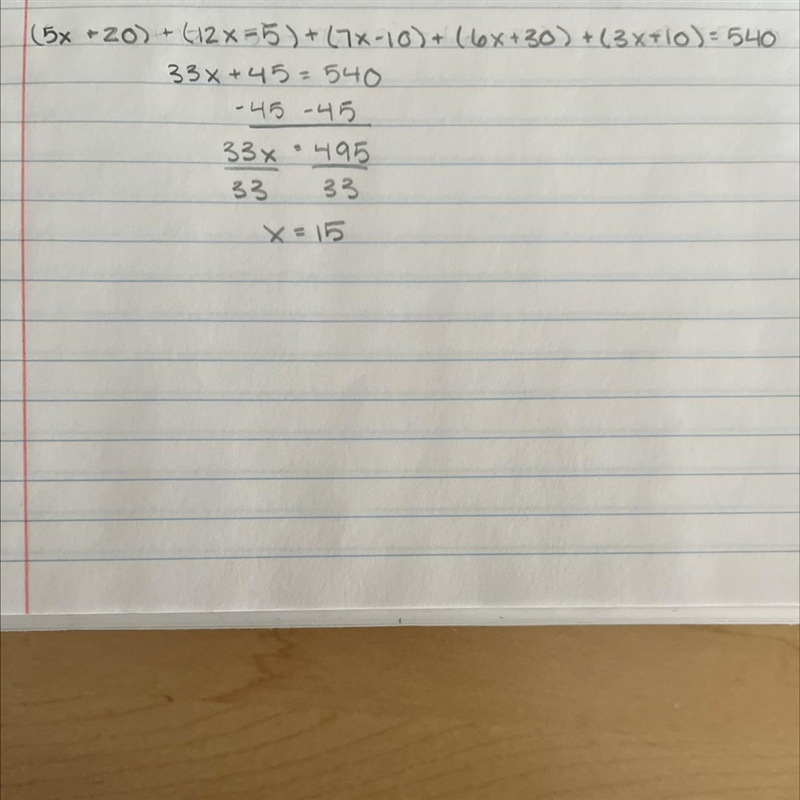 (5x + 20) + (12x - 5) + (7x - 10) + (6x + 30) + (3x + 10) = 540
33x + 45 = 540
-45 -45
33x = 495
33 33
x = 15